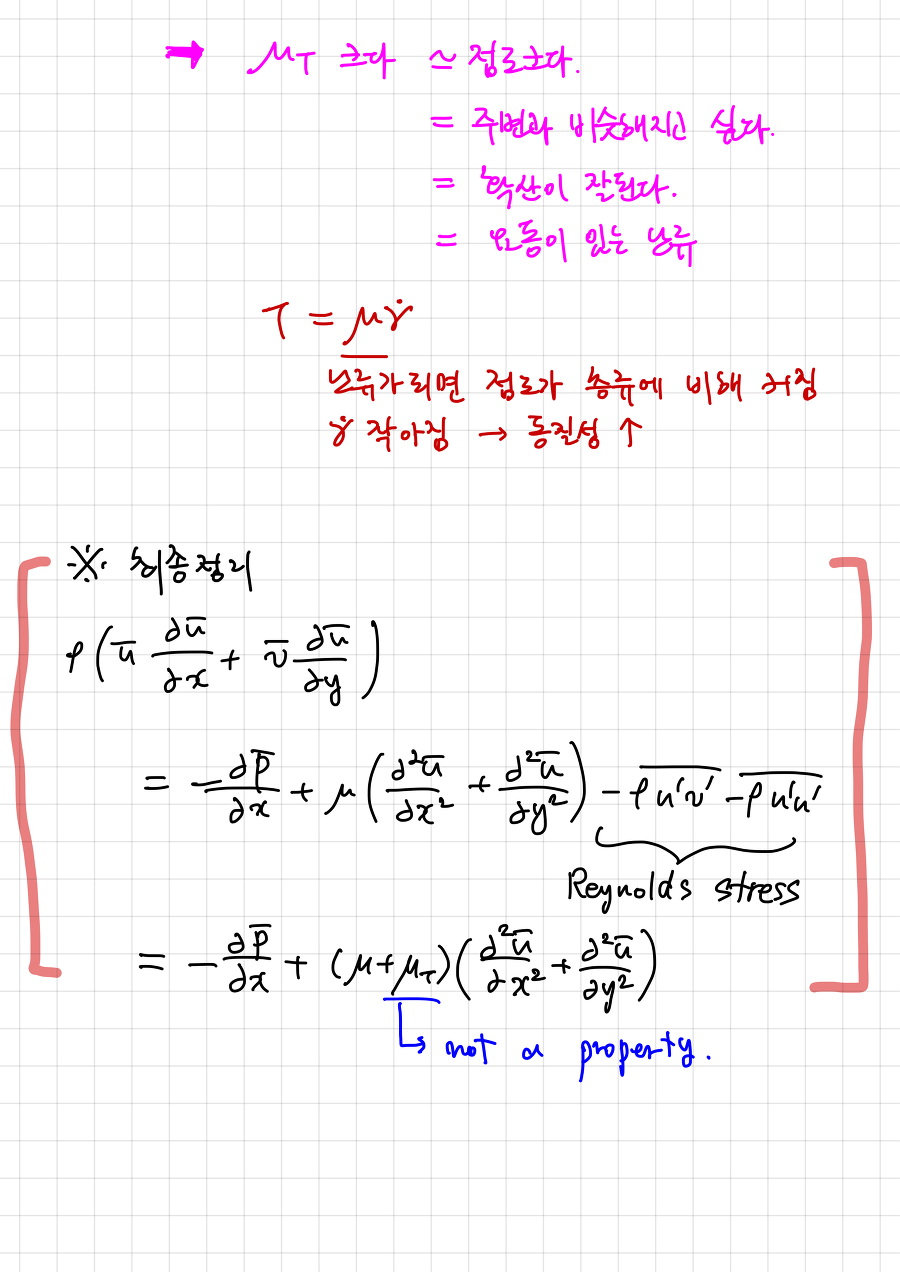 ➡ μ_T 크다 ≃ 점도크다.
= 주변과 비슷해지고 싶다.
= 확산이 잘된다.
= 요동이 있는 난류
τ = μγ̇
난류가되면 점도가 층류에 비해 커짐
γ̇ 작아짐 → 동질성 ↑
※. 최종정리
ρ(ū ∂ū/∂x + v̄ ∂ū/∂y)
= -∂p̄/∂x + μ(∂²ū/∂x² + ∂²ū/∂y²) - \overline{ρu'v'} - \overline{ρu'u'}
Reynolds stress
= -∂p̄/∂x + (μ+μ_T)(∂²ū/∂x² + ∂²ū/∂y²)
↳ not a property.